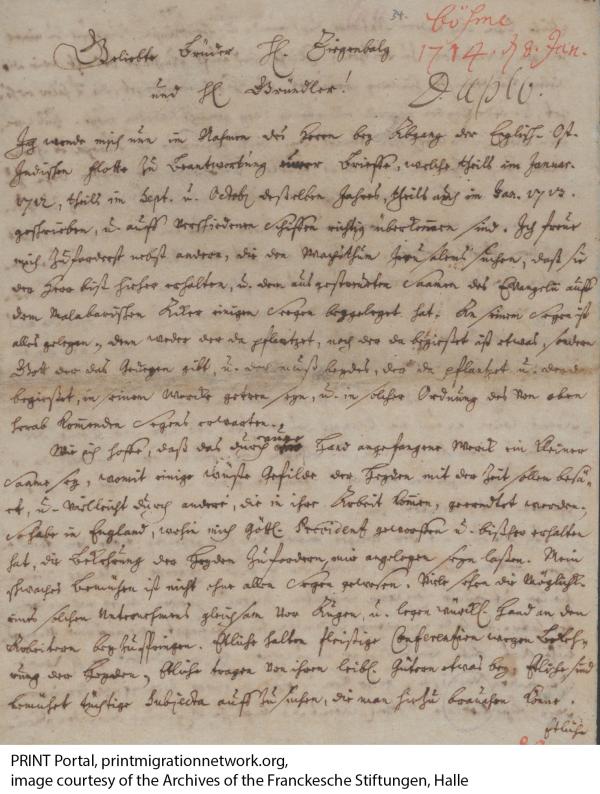 34.
Böhme
1714. d 8. Jan.
Duplo.
Geliebte Brüder H. Ziegenbalg
und H Gründler!
Ich wende mich nun im Nahmen des Herrn bey Abgang der Englisch. Ost-
Indischen flotte zu Beantwortung Brieffe, welche theils im Januar.
1712, theils im Sept. u. Octob. desselben Jahres, theils auch im Jan. 1713.
geschrieben, u. auff verschiedenen Schiffen richtig überkommen sind. Ich freue
mich zuforderst nebst andern, die den Wachsthum Jerusalems suchen, daß sie
der Herr bist hieher erhalten, u. dem ausgestreuten Saamen des Evangelii auff
dem Malabarischen Acker einigen Segen beygeleget hat. An seinem Segen ist
alles gelegen, denn weder der da pflantzet, noch der da begiesset ist etwas, sondern
Gott der das Gedeyen gibt, u. muß beydes, der da pflantzet u. der da
begiesset, in seinem Wercke getreu seyn, u. in solcher Ordnung des von oben
herab kommenden Segens erwarten.
Wie ich hoffe, daß das durch Hand angefangene Werck ein kleiner
Saame sey, womit einige wüste Gefilde der Heyden mit der Zeit sollen besä-
et, u. vielleicht durch andere, die in ihre Arbeit kommen, geerndtet werden.
so habe in England, wohin mich göttl. Providentz geworffen u. bißher erhalten
hat, die Bekehrung der Heyden zu fordern, mir angelegen seyn laßen. Mein
schwaches Bemühen ist nicht ohne allen Segen gewesen. Viele sehen die Möglichk.
eines solchen Unternehmens gleichsam vor Augen, u. legen würckl. Hand an den
Arbeitern beyzuspringen. Etliche halten fleissige Conferentien wegen Bekeh-
rung der Heyden, Etliche tragen von ihren leibl. Gütern etwas bey. Etliche sind
bemühet tüchtige Subjecta auffzusuchen, die man hierzu brauchen könne.
Etliche
PRINT Portal, printmigrationnetwork.org,
image courtesy of the Archives of the Franckesche Stiftungen, Halle